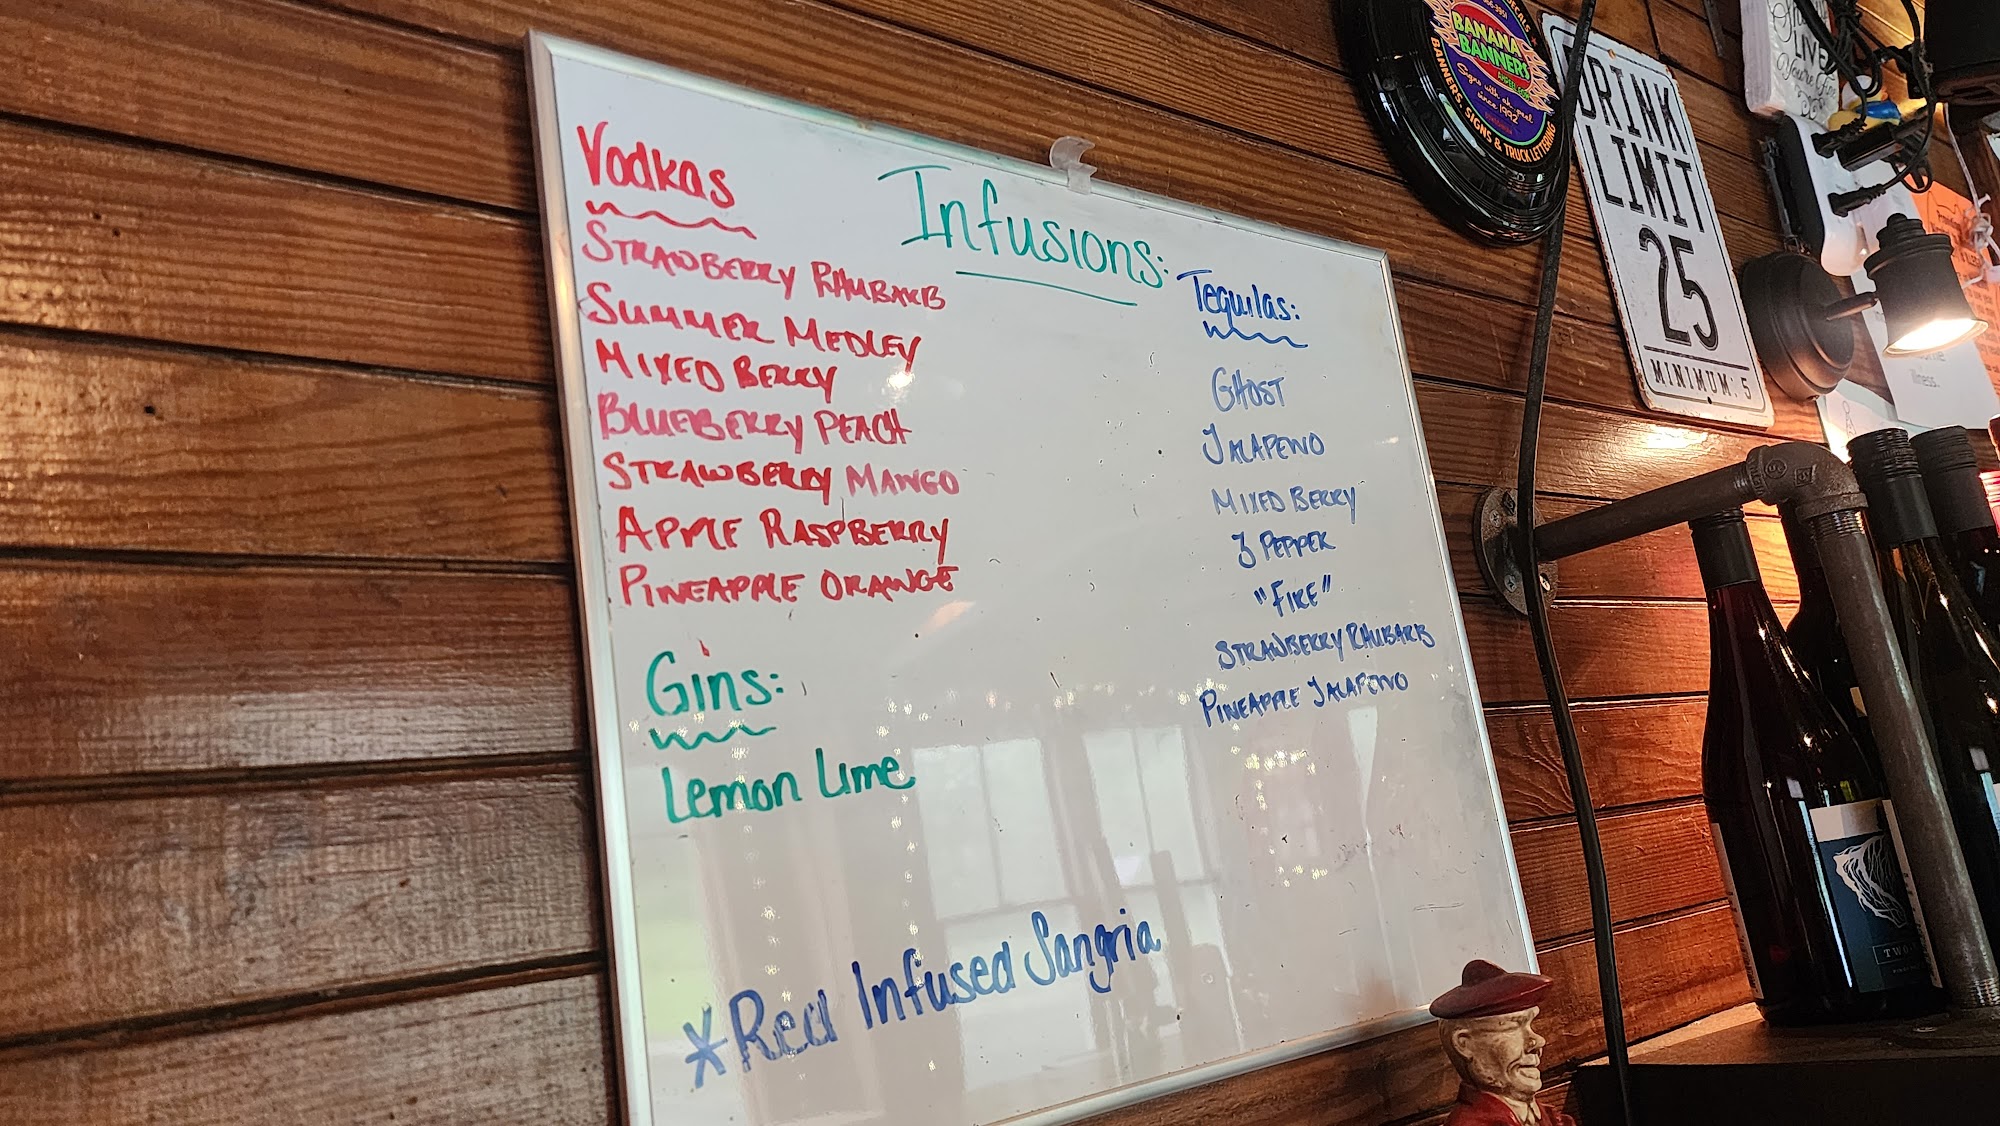 Infusions:
Vodkas
STRAWBERRY RHUBARB
SUMMER MEDLEY
MIXED BERRY
BLUEBERRY PEACH
STRAWBERRY MANGO
APPLE RASPBERRY
PINEAPPLE ORANGE
Gins:
Lemon Lime
Tequilas:
GHOST
JALAPENO
MIXED BERRY
3 PEPPER
"FIRE"
STRAWBERRY RHUBARB
PINEAPPLE JALAPENO
*Red Infused Sangria
BANANA
BANNERS
Signs with ah-peel
since 1992
BANNERS, SIGNS & TRUCK LETTERING
DRINK
LIMIT
25
MINIMUM: 5
LIVE
illness.
TWO